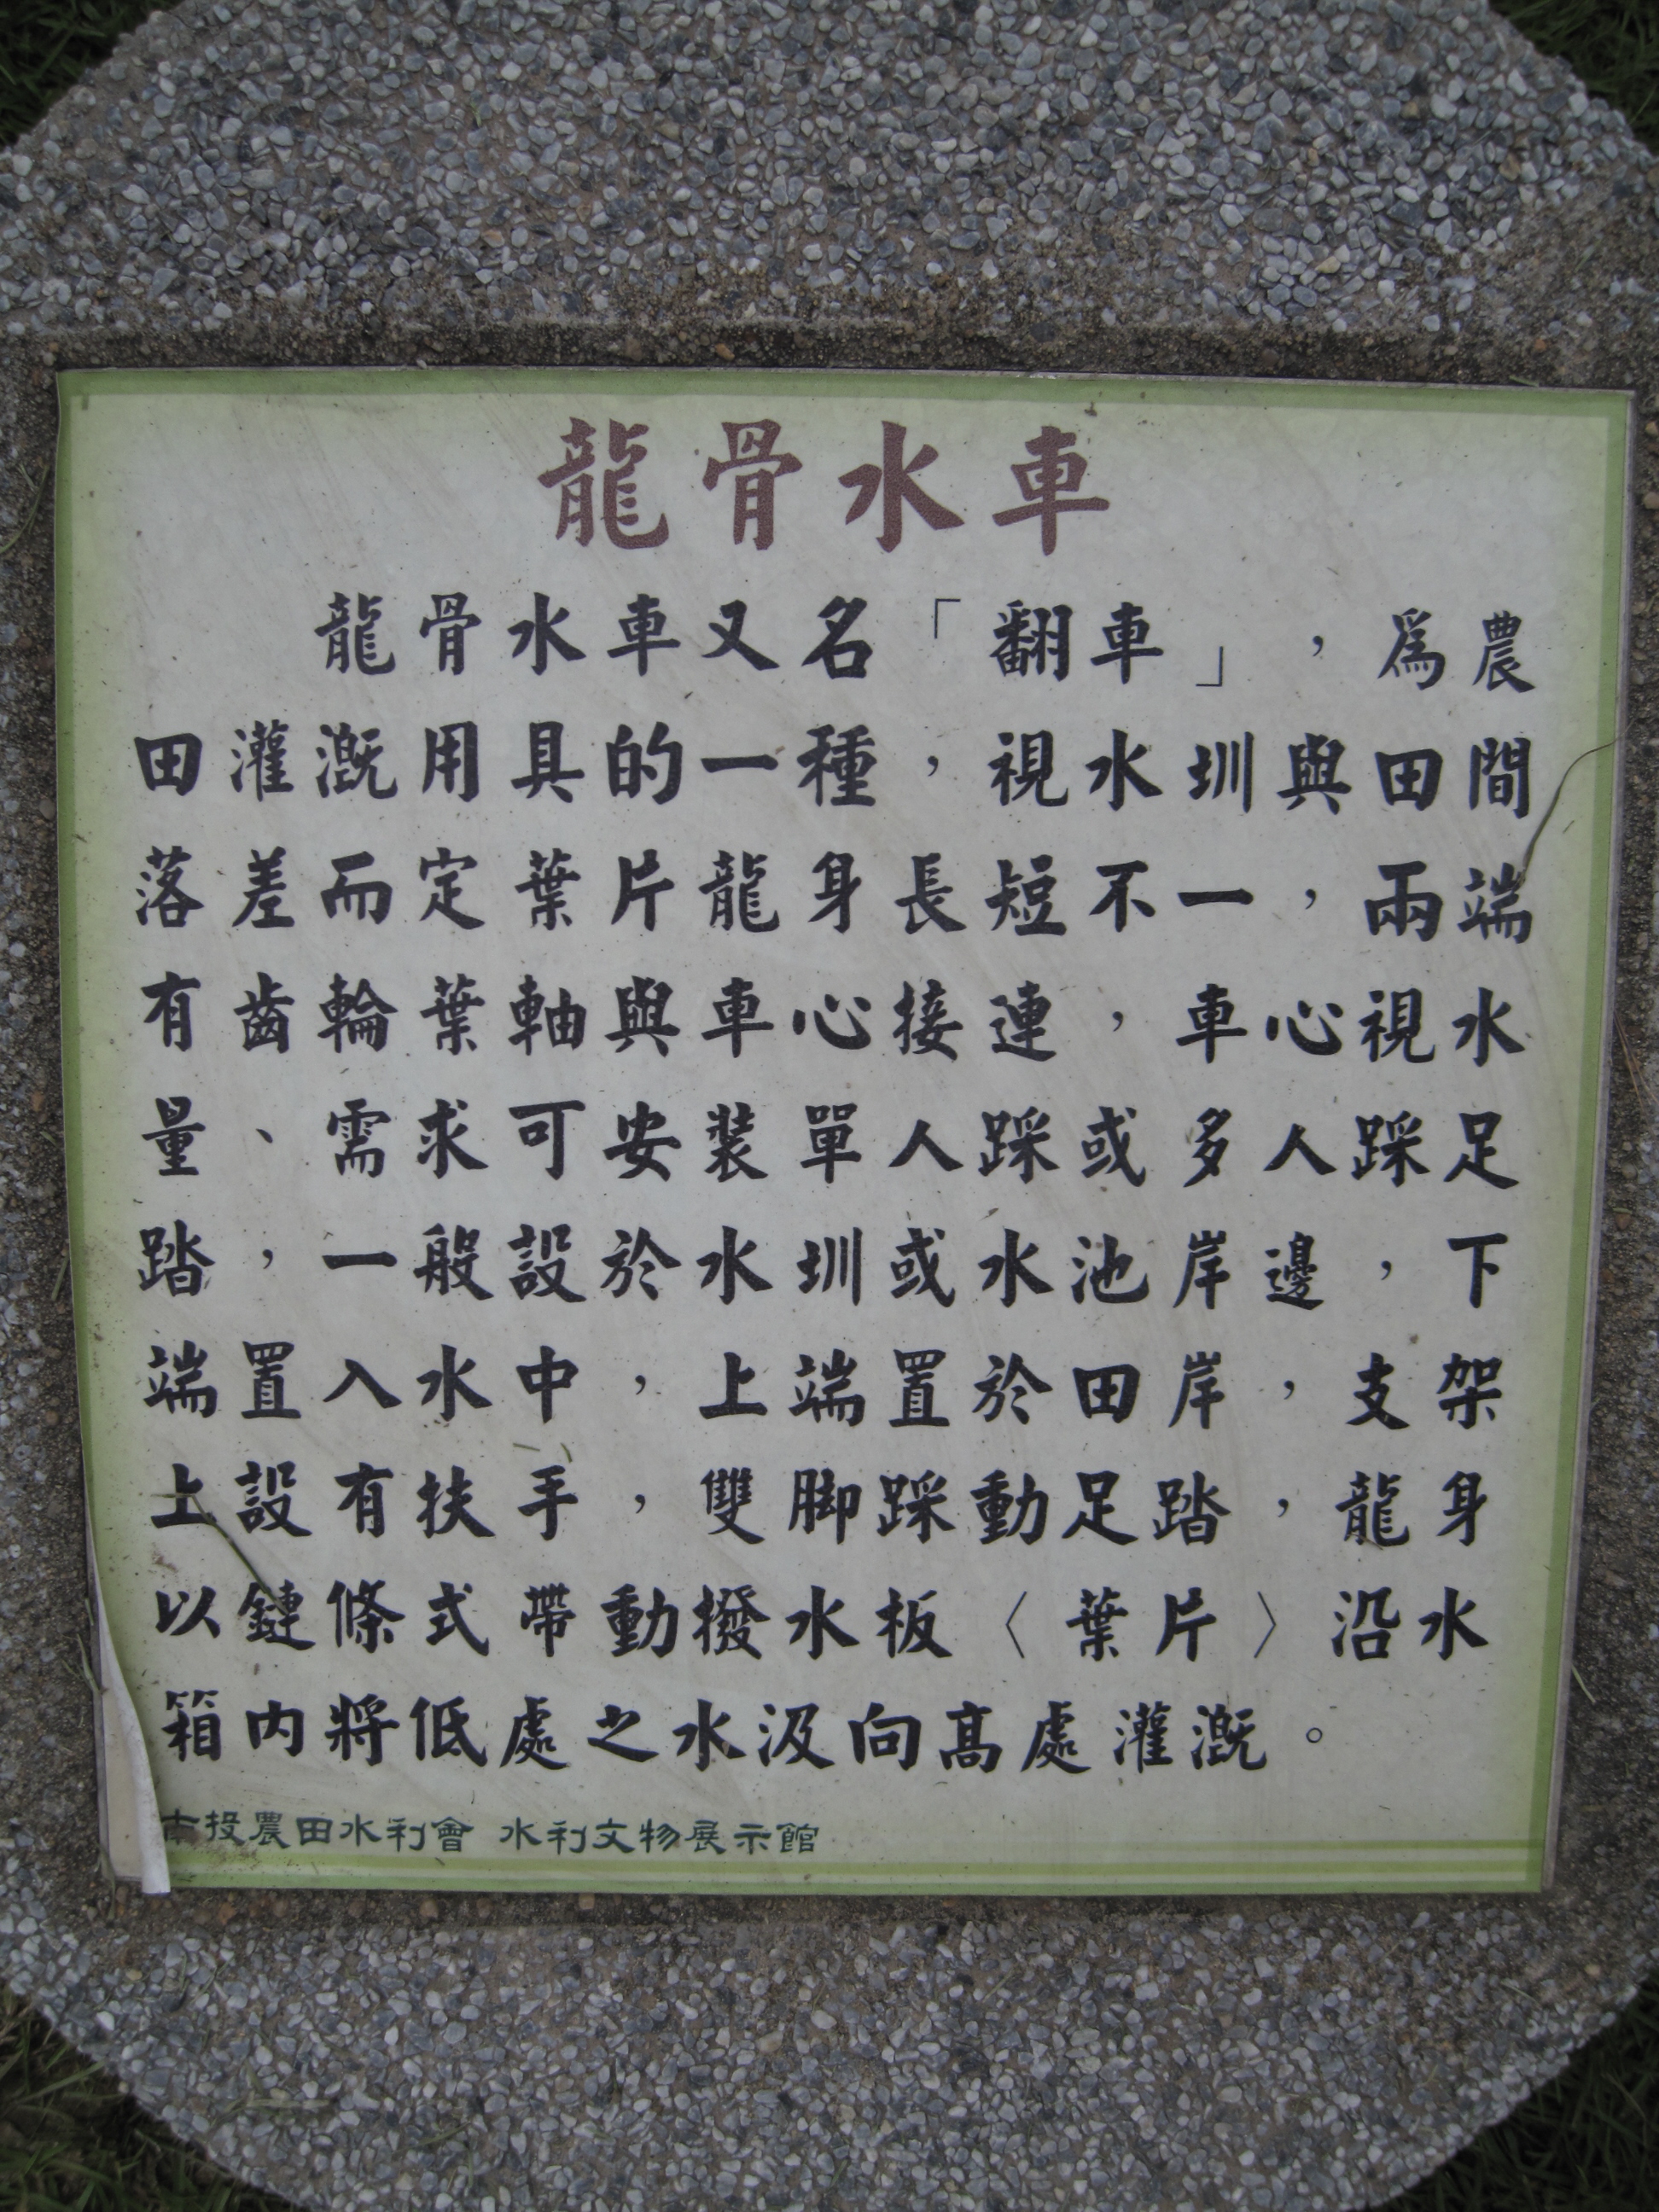 龍骨水車
龍骨水車又名「翻車」，為農
田灌溉用具的一種，視水圳與田間
落差而定葉片龍身長短不一，兩端
有齒輪葉軸與車心接連，車心視水
量、需求可安裝單人踩或多人踩足
踏，一般設於水圳或水池岸邊，下
端置入水中，上端置於田岸，支架
上設有扶手，雙腳踩動足踏，龍身
以鏈條式帶動撥水板〈葉片〉沿水
箱內將低處之水汲向高處灌溉。
投農田水利會 水利文物展示館